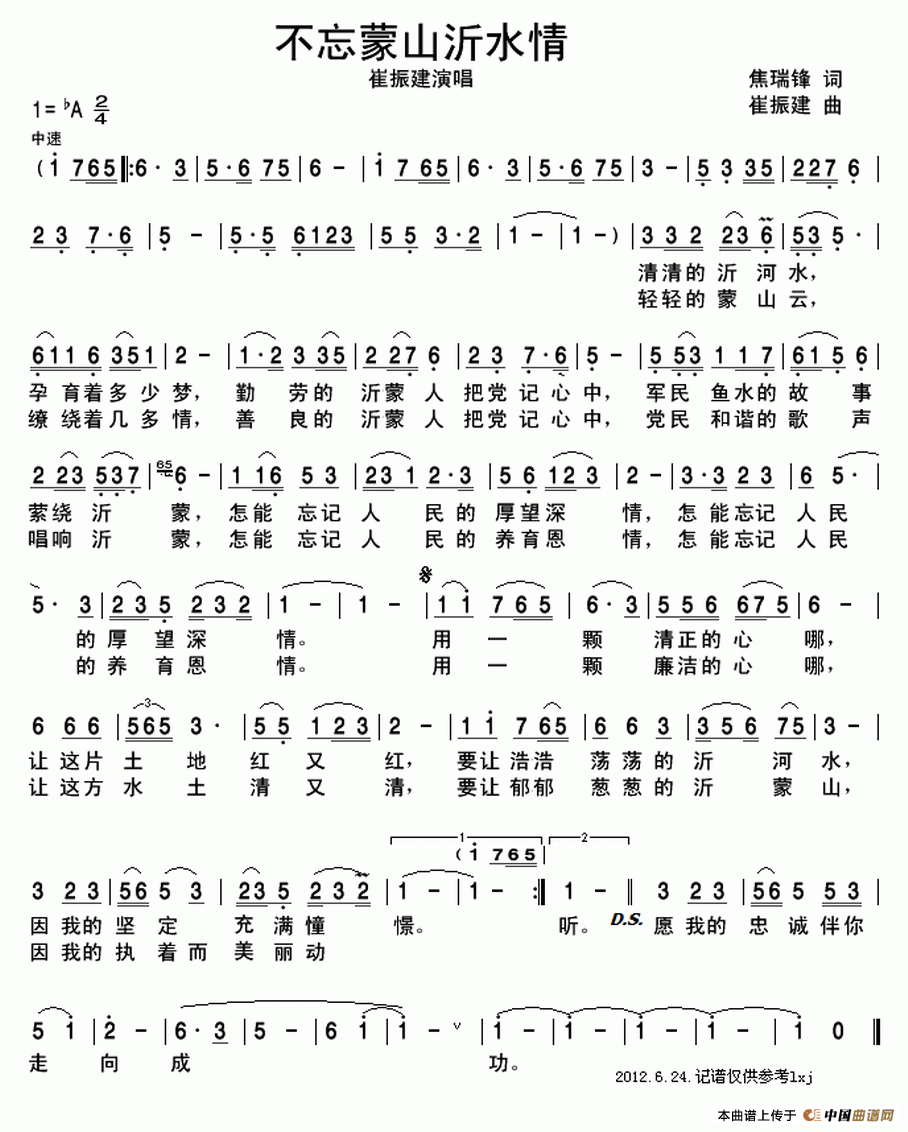 不忘蒙山沂水情
崔振建演唱
焦瑞锋 词
1=♭A 2/4
崔振建 曲
中速
(i 765 ‖: 6· 3 | 5·6 75 | 6 - | i 7 65 | 6· 3 | 5·6 75 | 3 - | 5 3 35 | 227 6 |
2 3 7·6 | 5 - | 5·5 6123 | 55 3·2 | 1 - | 1 -) | 332 23 6 | 53 5· |
清清的沂河水，
轻轻的蒙山云，
6116 351 | 2 - | 1·2 3 35 | 2 27 6 | 2 3 7·6 | 5 - | 5 53 1 17 | 61 5 6 |
孕育着多少梦，勤劳的沂蒙人把党记心中，军民鱼水的故事
缭绕着几多情，善良的沂蒙人把党记心中，党民和谐的歌声
2 23 537 | 65 6 - | 1 16 5 3 | 23 1 2·3 | 5 6 123 | 2 - | 3·3 2 3 | 6 5· |
萦绕沂蒙，怎能忘记人民的厚望深情，怎能忘记人民
唱响沂蒙，怎能忘记人民的养育恩情，怎能忘记人民
5· 3 | 23 5 232 | 1 - | 1 - | 11 7 65 | 6· 3 | 556 675 | 6 - |
的厚望深情。用一颗清正的心哪，
的养育恩情。用一颗廉洁的心哪，
6 66 | 565 3· | 55 123 | 2 - | 1i 7 65 | 6 6 3 | 356 75 | 3 - |
让这片土地红又红，要让浩浩荡荡的沂河水，
让这方水土清又清，要让郁郁葱葱的沂蒙山，
1 2
(i 765
3 23 | 56 5 3 | 23 5 232 | 1 - | 1 - :‖ 1 - ‖ 3 23 | 56 5 53 |
因我的坚定充满憧憬。听。D.S.愿我的忠诚伴你
因我的执着而美丽动
5 i | 2 - | 6· 3 | 5 - | 6 i | i - ∨ | i - | i - | i - | i - | i 0 ‖
走向成功。
2012.6.24.记谱仅供参考lxj
本曲谱上传于 中国曲谱网